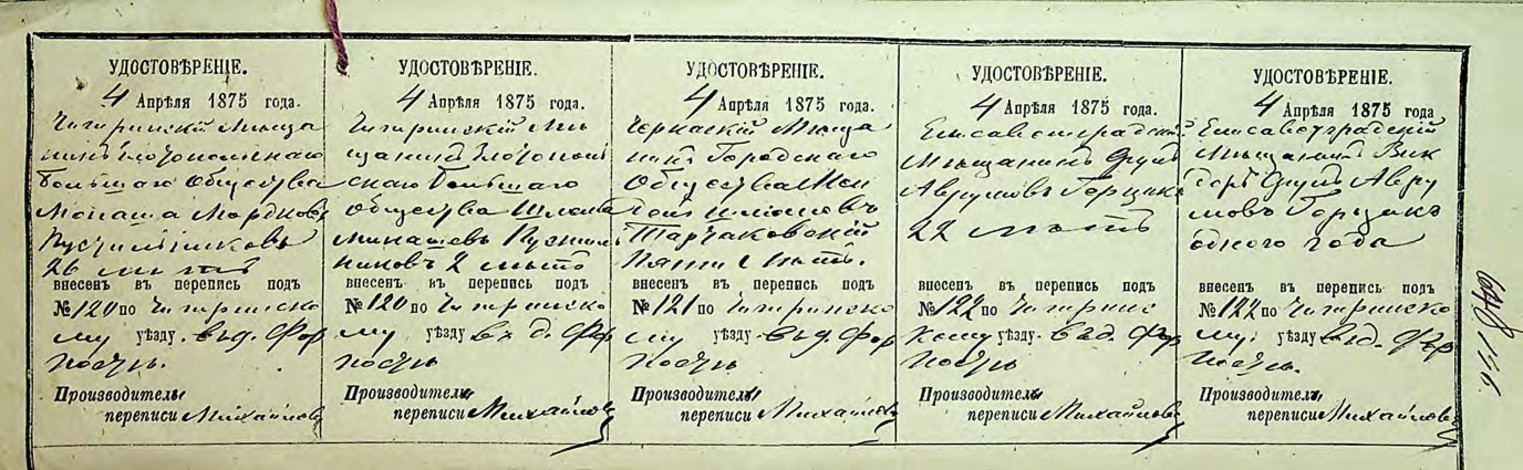 УДОСТОВѢРЕНІЕ.
4 Апрѣля 1875 года.
Чигиринскій Мѣща
нинъ Златопольскаго
Большаго Общества
Монаша Мордковъ
26 лѣтъ
внесенъ въ перепись подъ
№ 120 по Чигиринско
му уѣзду. въ д. Фор
постъ.
Производитель
переписи Михайловъ
УДОСТОВѢРЕНІЕ.
4 Апрѣля 1875 года.
Чигиринскій Мѣ
щанинъ Златополь
скаго Большаго
Общества Шлома
Минашевъ
2 лѣтъ
внесенъ въ перепись подъ
№ 120 по Чигиринско
му уѣзду въ д. Фор
постъ
Производитель
переписи Михайловъ
УДОСТОВѢРЕНІЕ.
4 Апрѣля 1875 года.
Черкаскій Мѣща
нинъ Городскаго
Общества Мен
дель
Тарчаковскій
Пяти лѣтъ.
внесенъ въ перепись подъ
№ 121 по Чигиринско
му уѣзду въ д. Фор
постъ
Производитель
переписи Михайловъ
УДОСТОВѢРЕНІЕ.
4 Апрѣля 1875 года.
Елисаветградскій
Мѣщанинъ Сруль
Аврумовъ Герцикъ
22 лѣтъ
внесенъ въ перепись подъ
№ 122 по Чигиринс
кому уѣзду. въ д. Фор
постъ
Производитель
переписи Михайловъ
УДОСТОВѢРЕНІЕ.
4 Апрѣля 1875 года
Елисаветградскій
Мѣщанинъ
Сруль Авру
мовъ Герцикъ
одного года
внесенъ въ перепись подъ
№ 122 по Чигиринско
му. уѣзду въ д. Фор
постъ.
Производитель
переписи Михайловъ